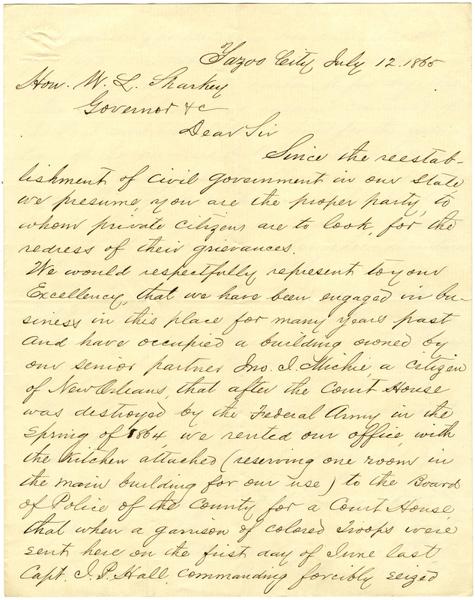 Yazoo City July 12. 1865
Hon. W. L. Sharkey
Governor &c
Dear Sir
Since the reestab-
lishment of civil government in our State
we presume you are the proper party, to
whom private citizens are to look, for the
redress of their grievances.
We would respectfully represent to your
Excellency, that we have been engaged in bu-
siness in this place for many years past
and have occupied a building owned by
our senior partner Jno. I. Michie a citizen
of New Orleans, that after the Court House
was destroyed by the Federal Army in the
Spring of 1864 we rented our office, with
the Kitchen attached (reserving one room in
the main building for our use) to the Board
of Police of the County for a Court House
that when a garrison of colored Troops were
sent here on the first day of June last
Capt. I. P. Hall, commanding forcibly seized